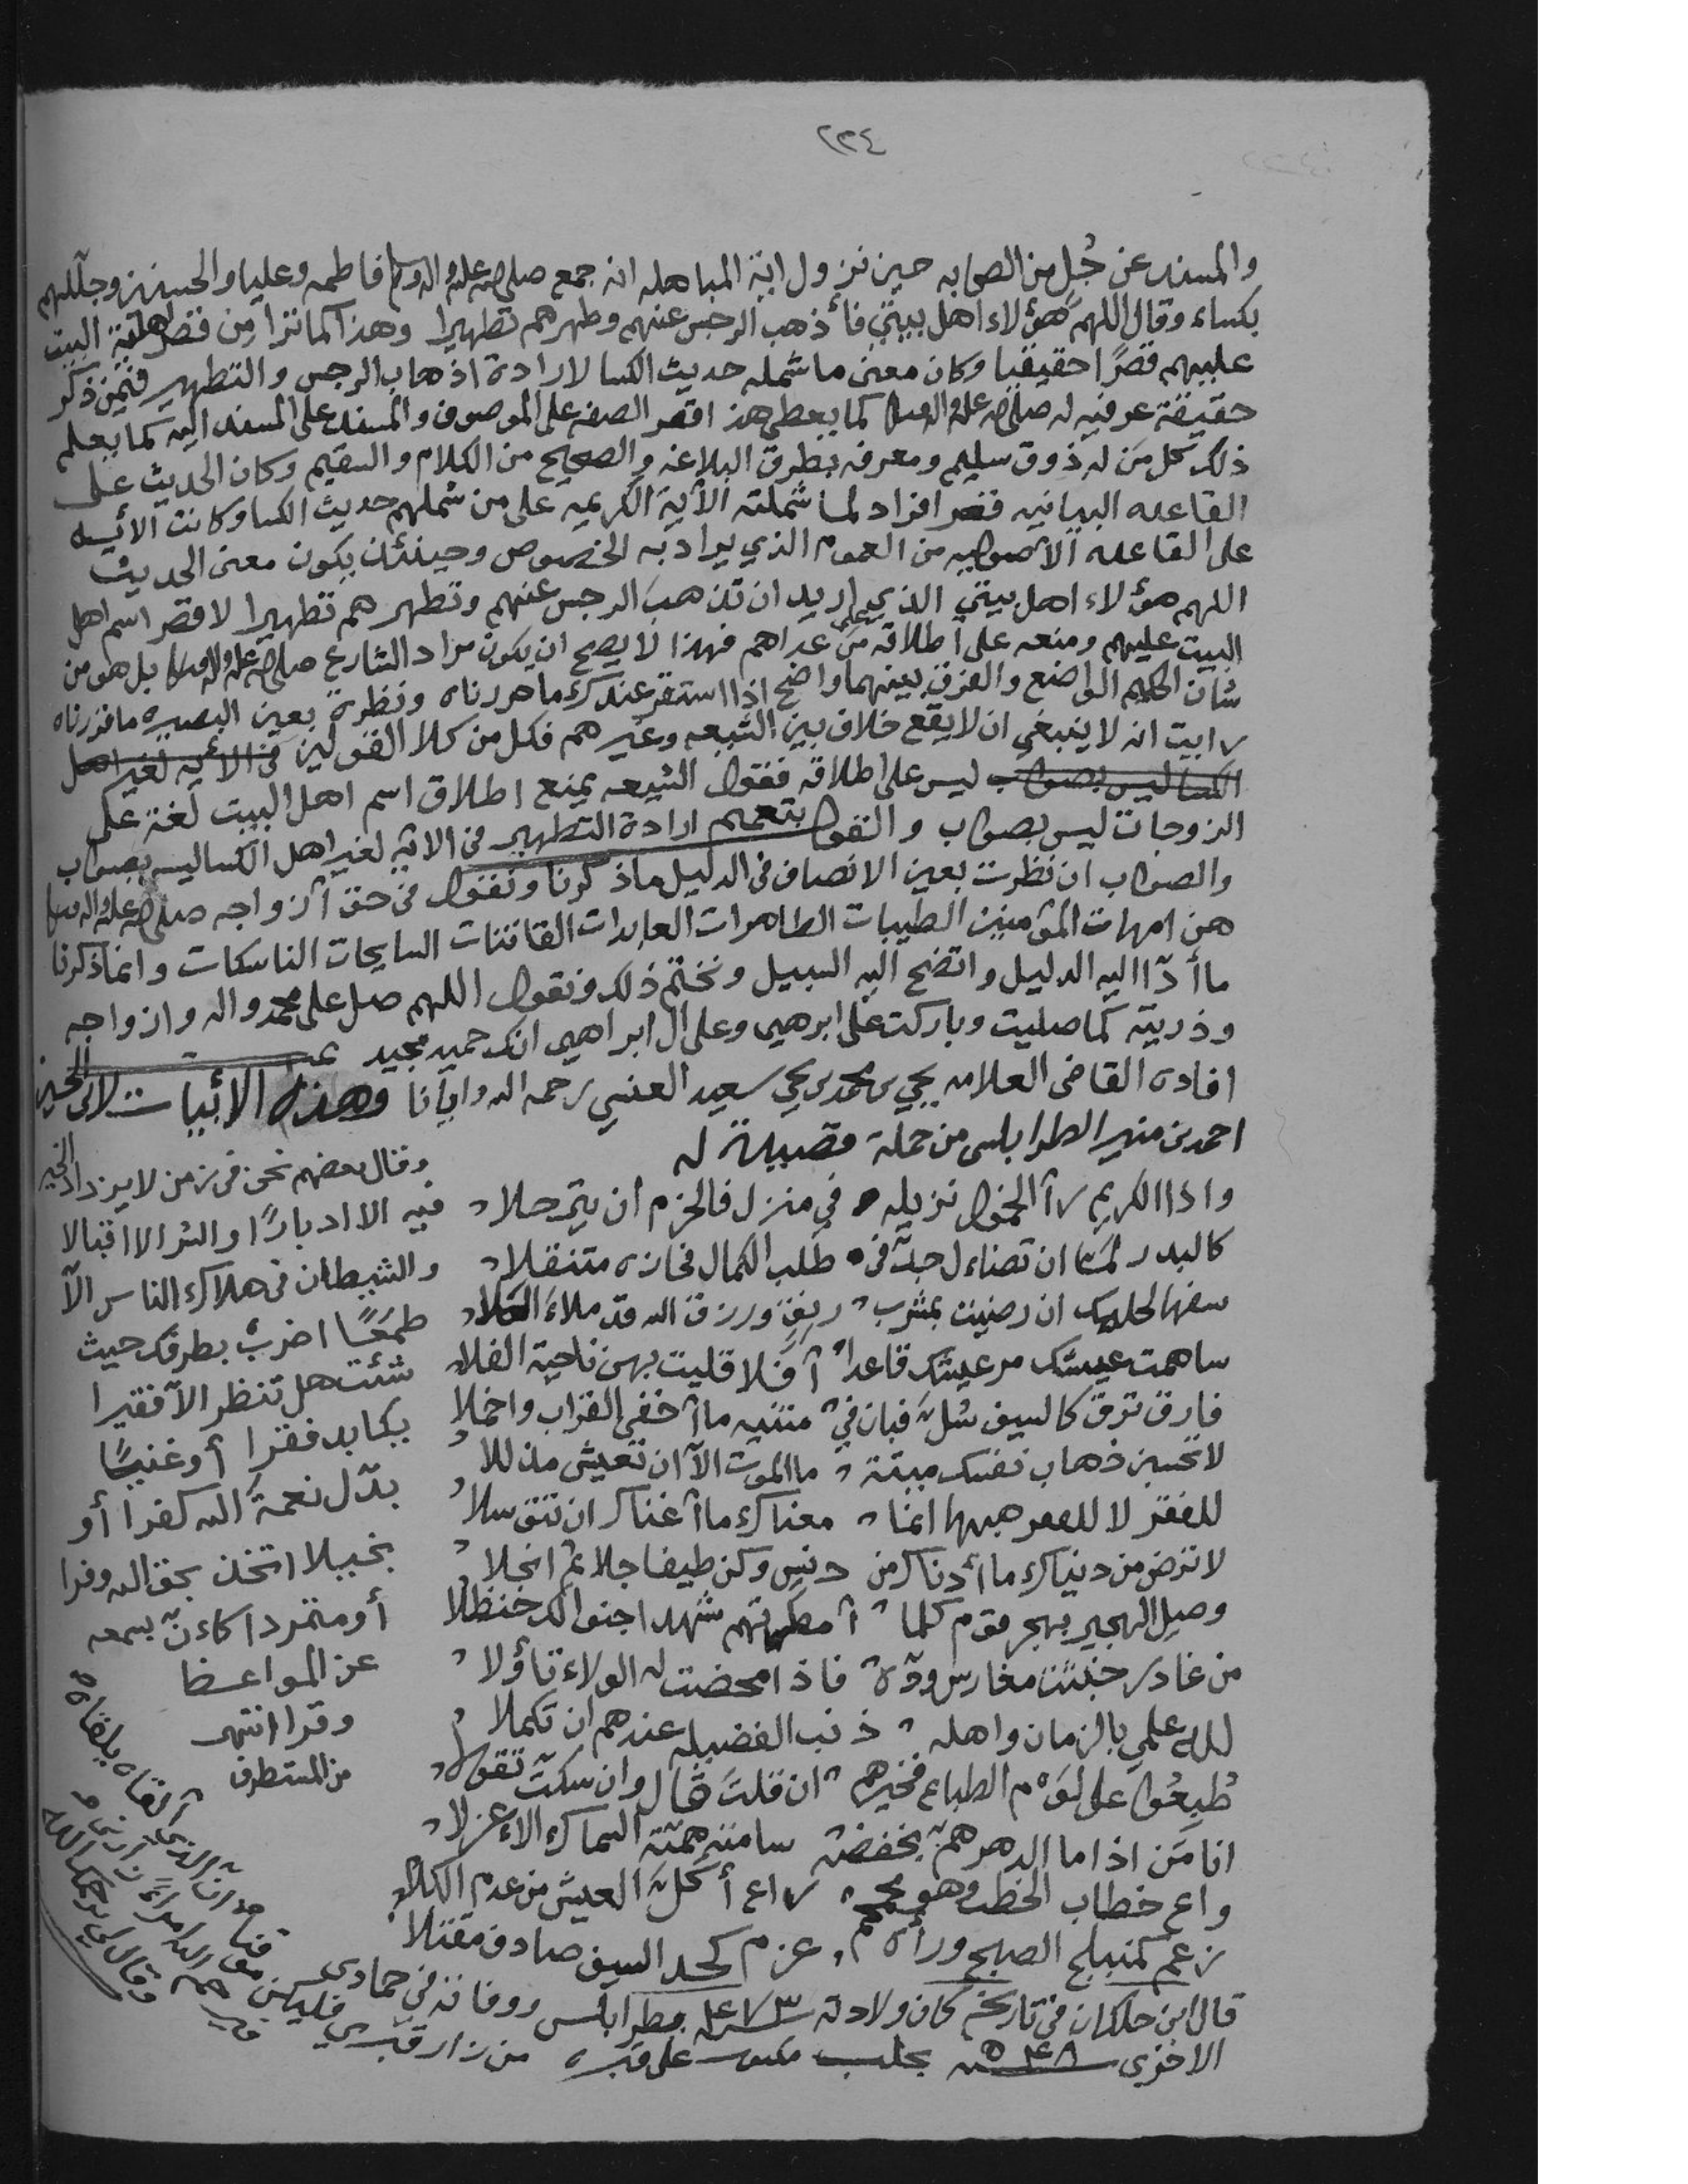 ٢٢٤
والمسند عن جُبل من الصحابه حين نزول اية المباهله انه جمع صلى الله عليه واله وسلم فاطمه وعليا والحسنين وجللهم
بكساء وقال اللهم هؤلاء اهل بيتي فأذهب الرجس عنهم وطهرهم تطهيرا وهذا كما ترا من قصر اهلية البيت
عليهم قصرًا حقيقيا وكان معنى ما شمله حديث الكسا لارادة اذهاب الرجس والتطهير فيمن ذكر
حقيقة عرفيه له صلى الله عليه واله وسلم كما يعطي هذا قصر الصفه على الموصوف والمسند على المسند اليه كما يعلم
ذلك كل من له ذوق سليم ومعرفه بطرق البلاغه والصحيح من الكلام والسقيم وكان الحديث على
القاعده البيانيه قصر افراد لما شملته الآية الكريمه على من شملهم حديث الكسا وكانت الأيه
على القاعده الأصوليه من العموم الذي يراد به الخصوص وحينئذ يكون معنى الحديث
اللهم هؤلاء اهل بيتي الذي اريد ان تذهب الرجس عنهم وتطهرهم تطهيرا لا قصر اسم اهل
البيت عليهم ومنعه على اطلاقه على من عداهم فهذا لا يصح ان يكون مراد الشارع صلى الله عليه واله وسلم بل هو من
شان الحكيم الواضع والفرق بينهما واضح اذا استقر عندك ما حررناه ونظرة بعين البصيره ما قررناه
رايت انه لا ينبغي ان لا يقع خلاف بين الشيعه وغيرهم فكل من كلا القولين في الأيه لغير اهل
الكسا ليس بصواب ليس على اطلاقه فقول الشيعه يمنع اطلاق اسم اهل البيت لغة على
الزوجات ليس بصواب والقول بتعميم ارادة التطهير في الايه لغير اهل الكسا ليس بصواب
والصواب ان نظرت بعين الانصاف في الدليل ما ذكرنا ونقول في حق أزواجه صلى الله عليه واله وسلم
هن امهات المؤمنين الطيبات الطاهرات العابدات القانتات السايحات الناسكات وانما ذكرنا
ما أدّا اليه الدليل واتضح اليه السبيل ونختم ذلك ونقول اللهم صل على محمد واله وازواجه
وذريته كما صليت وباركت على ابرهيم وعلى ال ابراهيم انك حميد مجيد
افاده القاضي العلامه يحيى بن محمد بن يحيى سعيد العنسي رحمه الله وايانا وهذه الأبيات لابي الحسين
احمد بن منير الطرابلسي من جملة قصيدة له
واذا الكريم رآ الخمول نزيله في منزل فالحزم ان يترحلا
كالبدر لما ان تضاءل جدّ في طلب الكمال فحازه متنقلا
سفها لحلمك ان رضيت بمشرب رنقٍ ورزق الله قد ملاء الملا
ساهمت عيسك مر عيشك قاعدا أفلا فليت بهن ناحية الفلا
فارق ترق كالسيف سُلّ فبان في متنيه ما أخفى القراب واخملا
لا تحسبن ذهاب نفسك ميتة ما الموت الّا ان تعيش مذللا
للفقر لا للفقر هبها انما مغناك ما أغناك ان تتوسلا
لا ترض من دنياك ما أدناك من دنس وكن طيفا جلا ثم انجلا
وصل الهجير بهجر قوم كلما أمطرتهم شهدا جنوا لك حنظلا
من غادر خبثت مغارس ودّه فاذا محضت له الولاء تأولا
لله علمي بالزمان واهله ذنب الفضيله عندهم ان تكملا
طُبِعُوا على لؤم الطباع فخيرهم ان قلت قال وان سكتّ تقولا
انا مَن اذا ما الدهر همّ بخفضه سامته همته السماك الاعزلا
واعٍ خطاب الخطب وهو مجمجم راع أكلّ العيش من عدم الكلا
زعم كمنبلج الصبح وراه عزم كحد السيف صادف مقتلا
قال ابن خلكان في تاريخه كان ولادته سنة ٤٧٣ بطرابلس ووفاته في جمادى
الاخرى سنة ٥٤٨ بحلب مكتوب على قبره من زار قبري فليكن موقنا
ان الذي ألقاه يلقاه
فيرحم الله امرأً زارني
وقال لي يرحمك الله
وقال بعضهم نحن في زمن لا يزداد الخير
فيه الا ادبارًا والشر الا اقبالا
والشيطان في هلاك الناس الّا
طمعًا اضرب بطرفك حيث
شئت هل تنظر الّا فقيرا
يكابد فقرا أو غنيًّا
بدّل نعمة الله كفرا أو
بخيلا اتخذ بحق الله وفرا
أو متمردا كاءن بسمعه
عن المواعظ
وقرا انتهى
من المستطرف